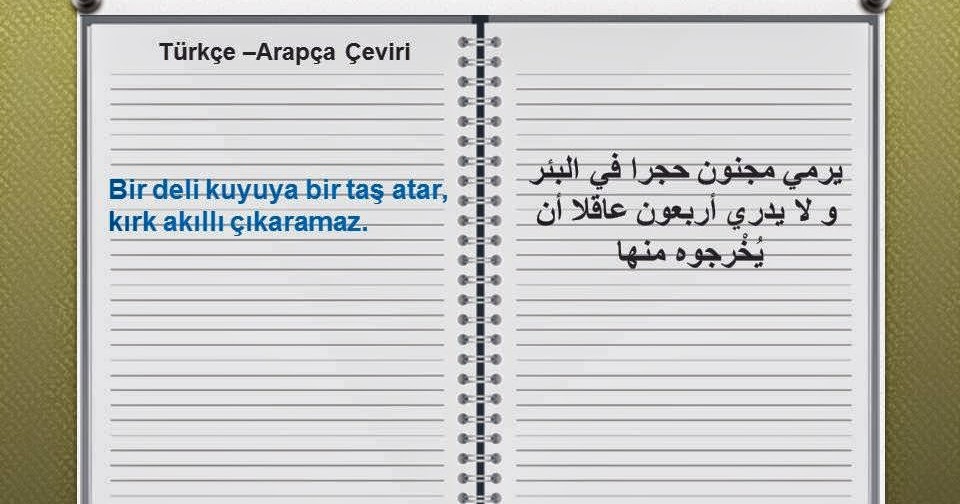 Türkçe –Arapça Çeviri
Bir deli kuyuya bir taş atar,
kırk akıllı çıkaramaz.
يرمي مجنون حجرا في البئر
و لا يدري أربعون عاقلا أن
يُخْرجوه منها